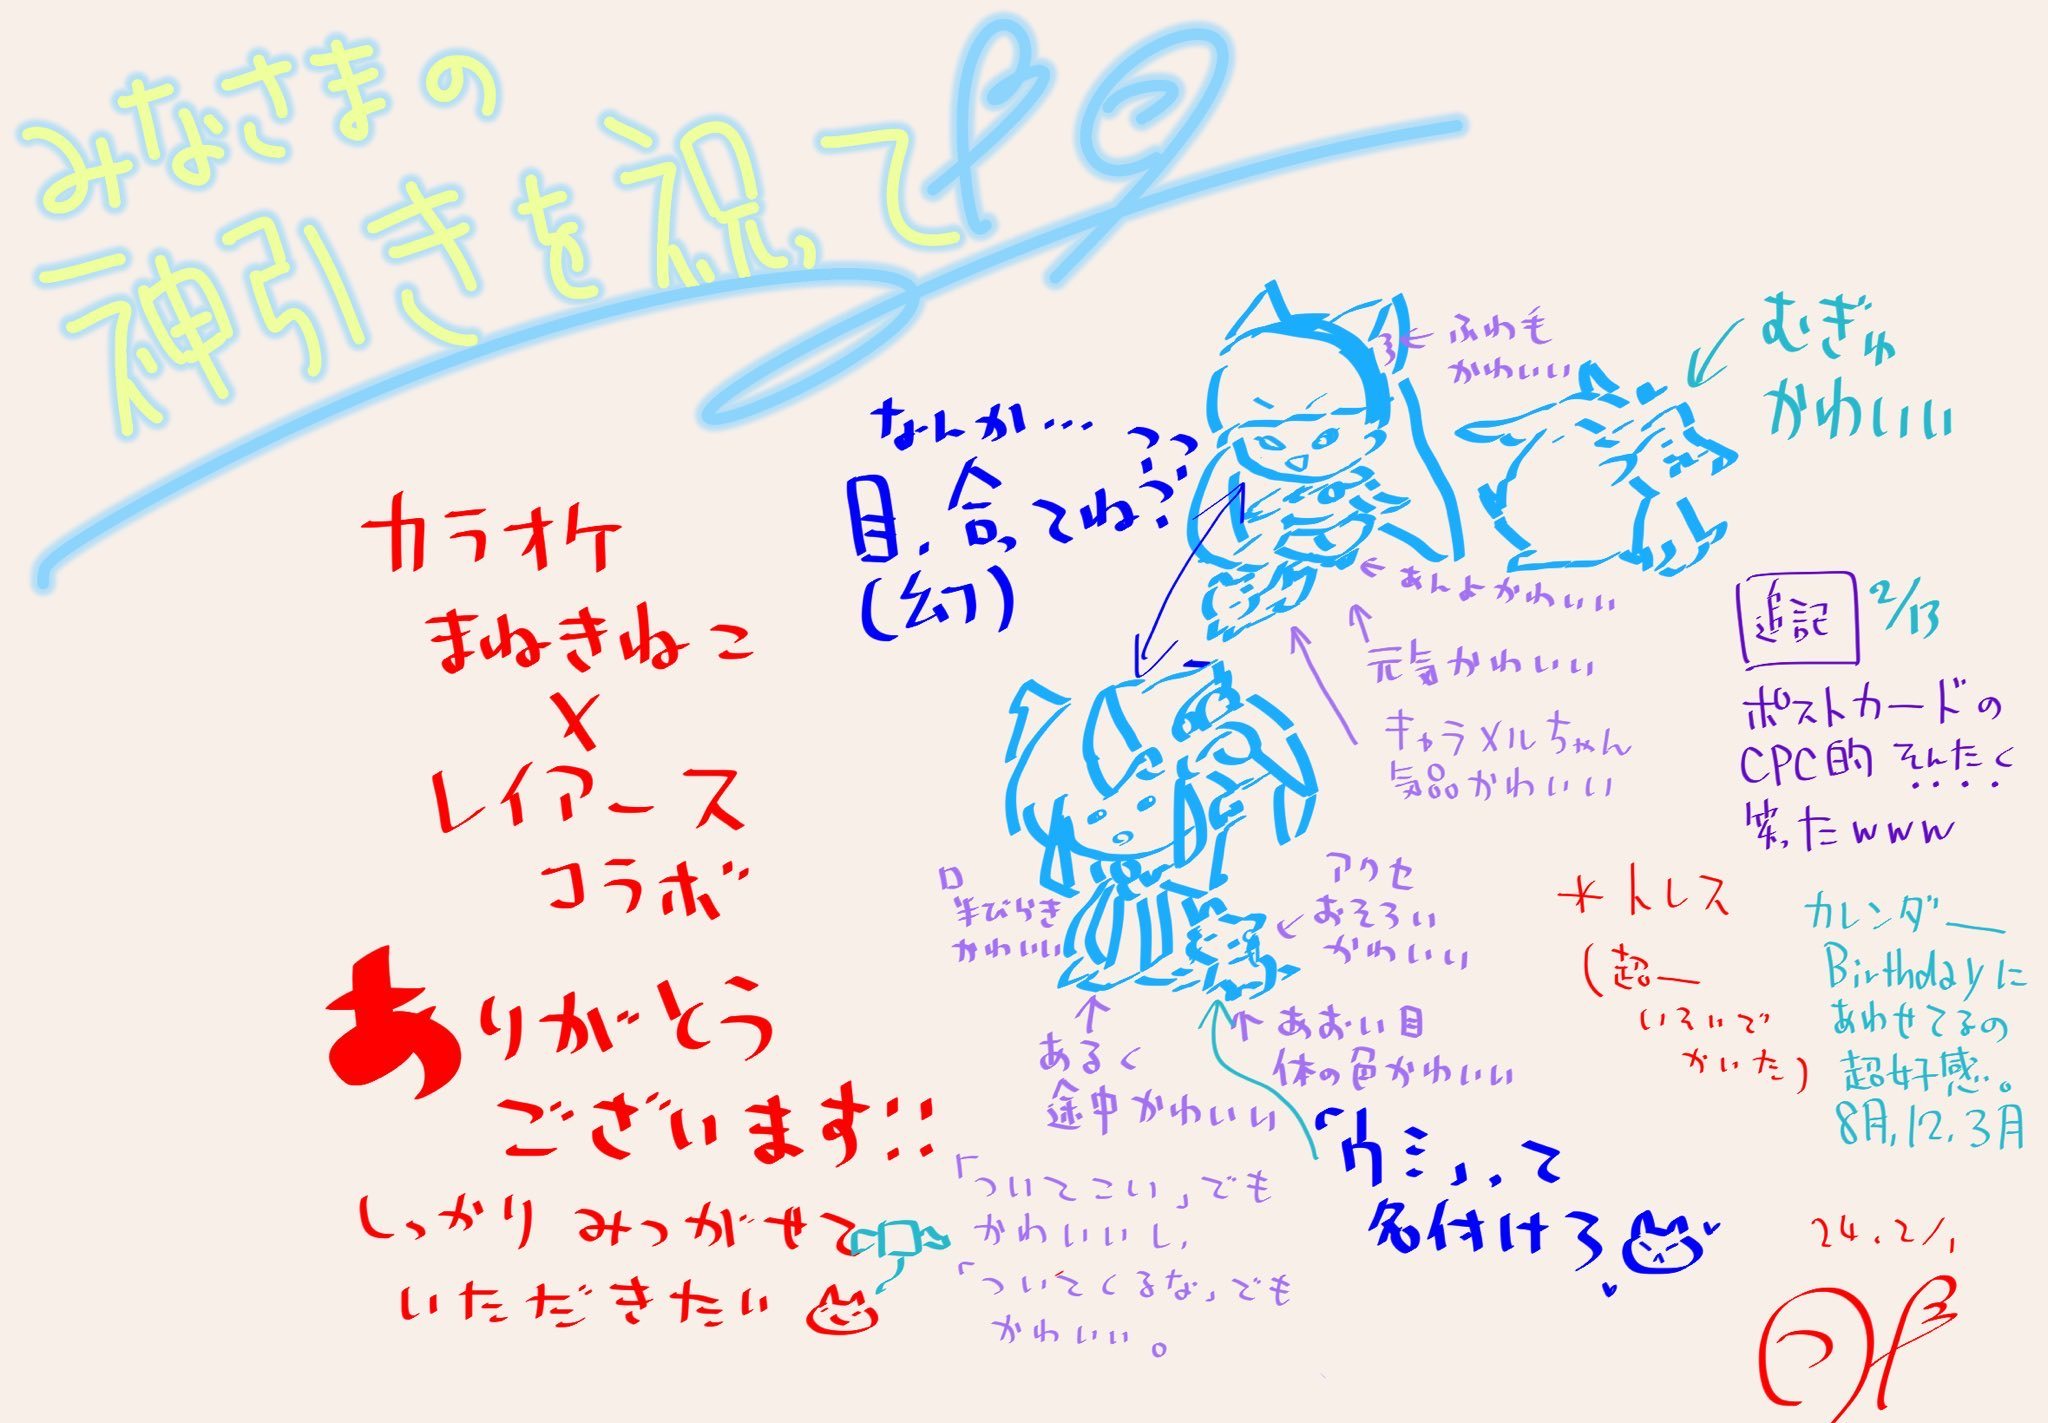 みなさまの
神引きを祝って
カラオケ
まねきねこ
×
レイアース
コラボ
ありがとう
ございます!!
しっかり みつがせて
いただきたい
なんか…
目、合ってね??
(幻)
ふわ毛
かわいい
むぎゅ
かわいい
あんよかわいい
元気かわいい
キャラメルちゃん
気品かわいい
口
半びらき
かわいい
アクセ
おそろい
かわいい
あるく
途中かわいい
あおい目
体の色かわいい
「ウミ」って
名付けろ
「ついてこい」でも
かわいいし、
「ついてくるな」でも
かわいい。
追記 2/13
ポストカードの
CPC的 そんたく
笑ったwww
*トレス
(超ー
いそいで
かいた)
カレンダー
Birthdayに
あわせてるの
超好感。
8月,12,3月
24.2/1